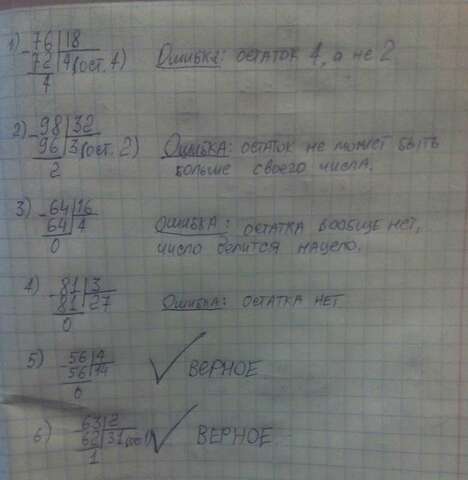 1) -76|18
72|4(ост. 4) Ошибка: остаток 4, а не 2
4
2) -98|32
96|3(ост. 2) Ошибка: остаток не может быть
2 больше своего числа.
3) -64|16
64|4 Ошибка: остатка вообще нет,
0 число делится нацело.
4) -81|3
81|27 Ошибка: остатка нет
0
5) -56|4
56|14 верное
0
6) -63|2
62|31(ост1) верное
1